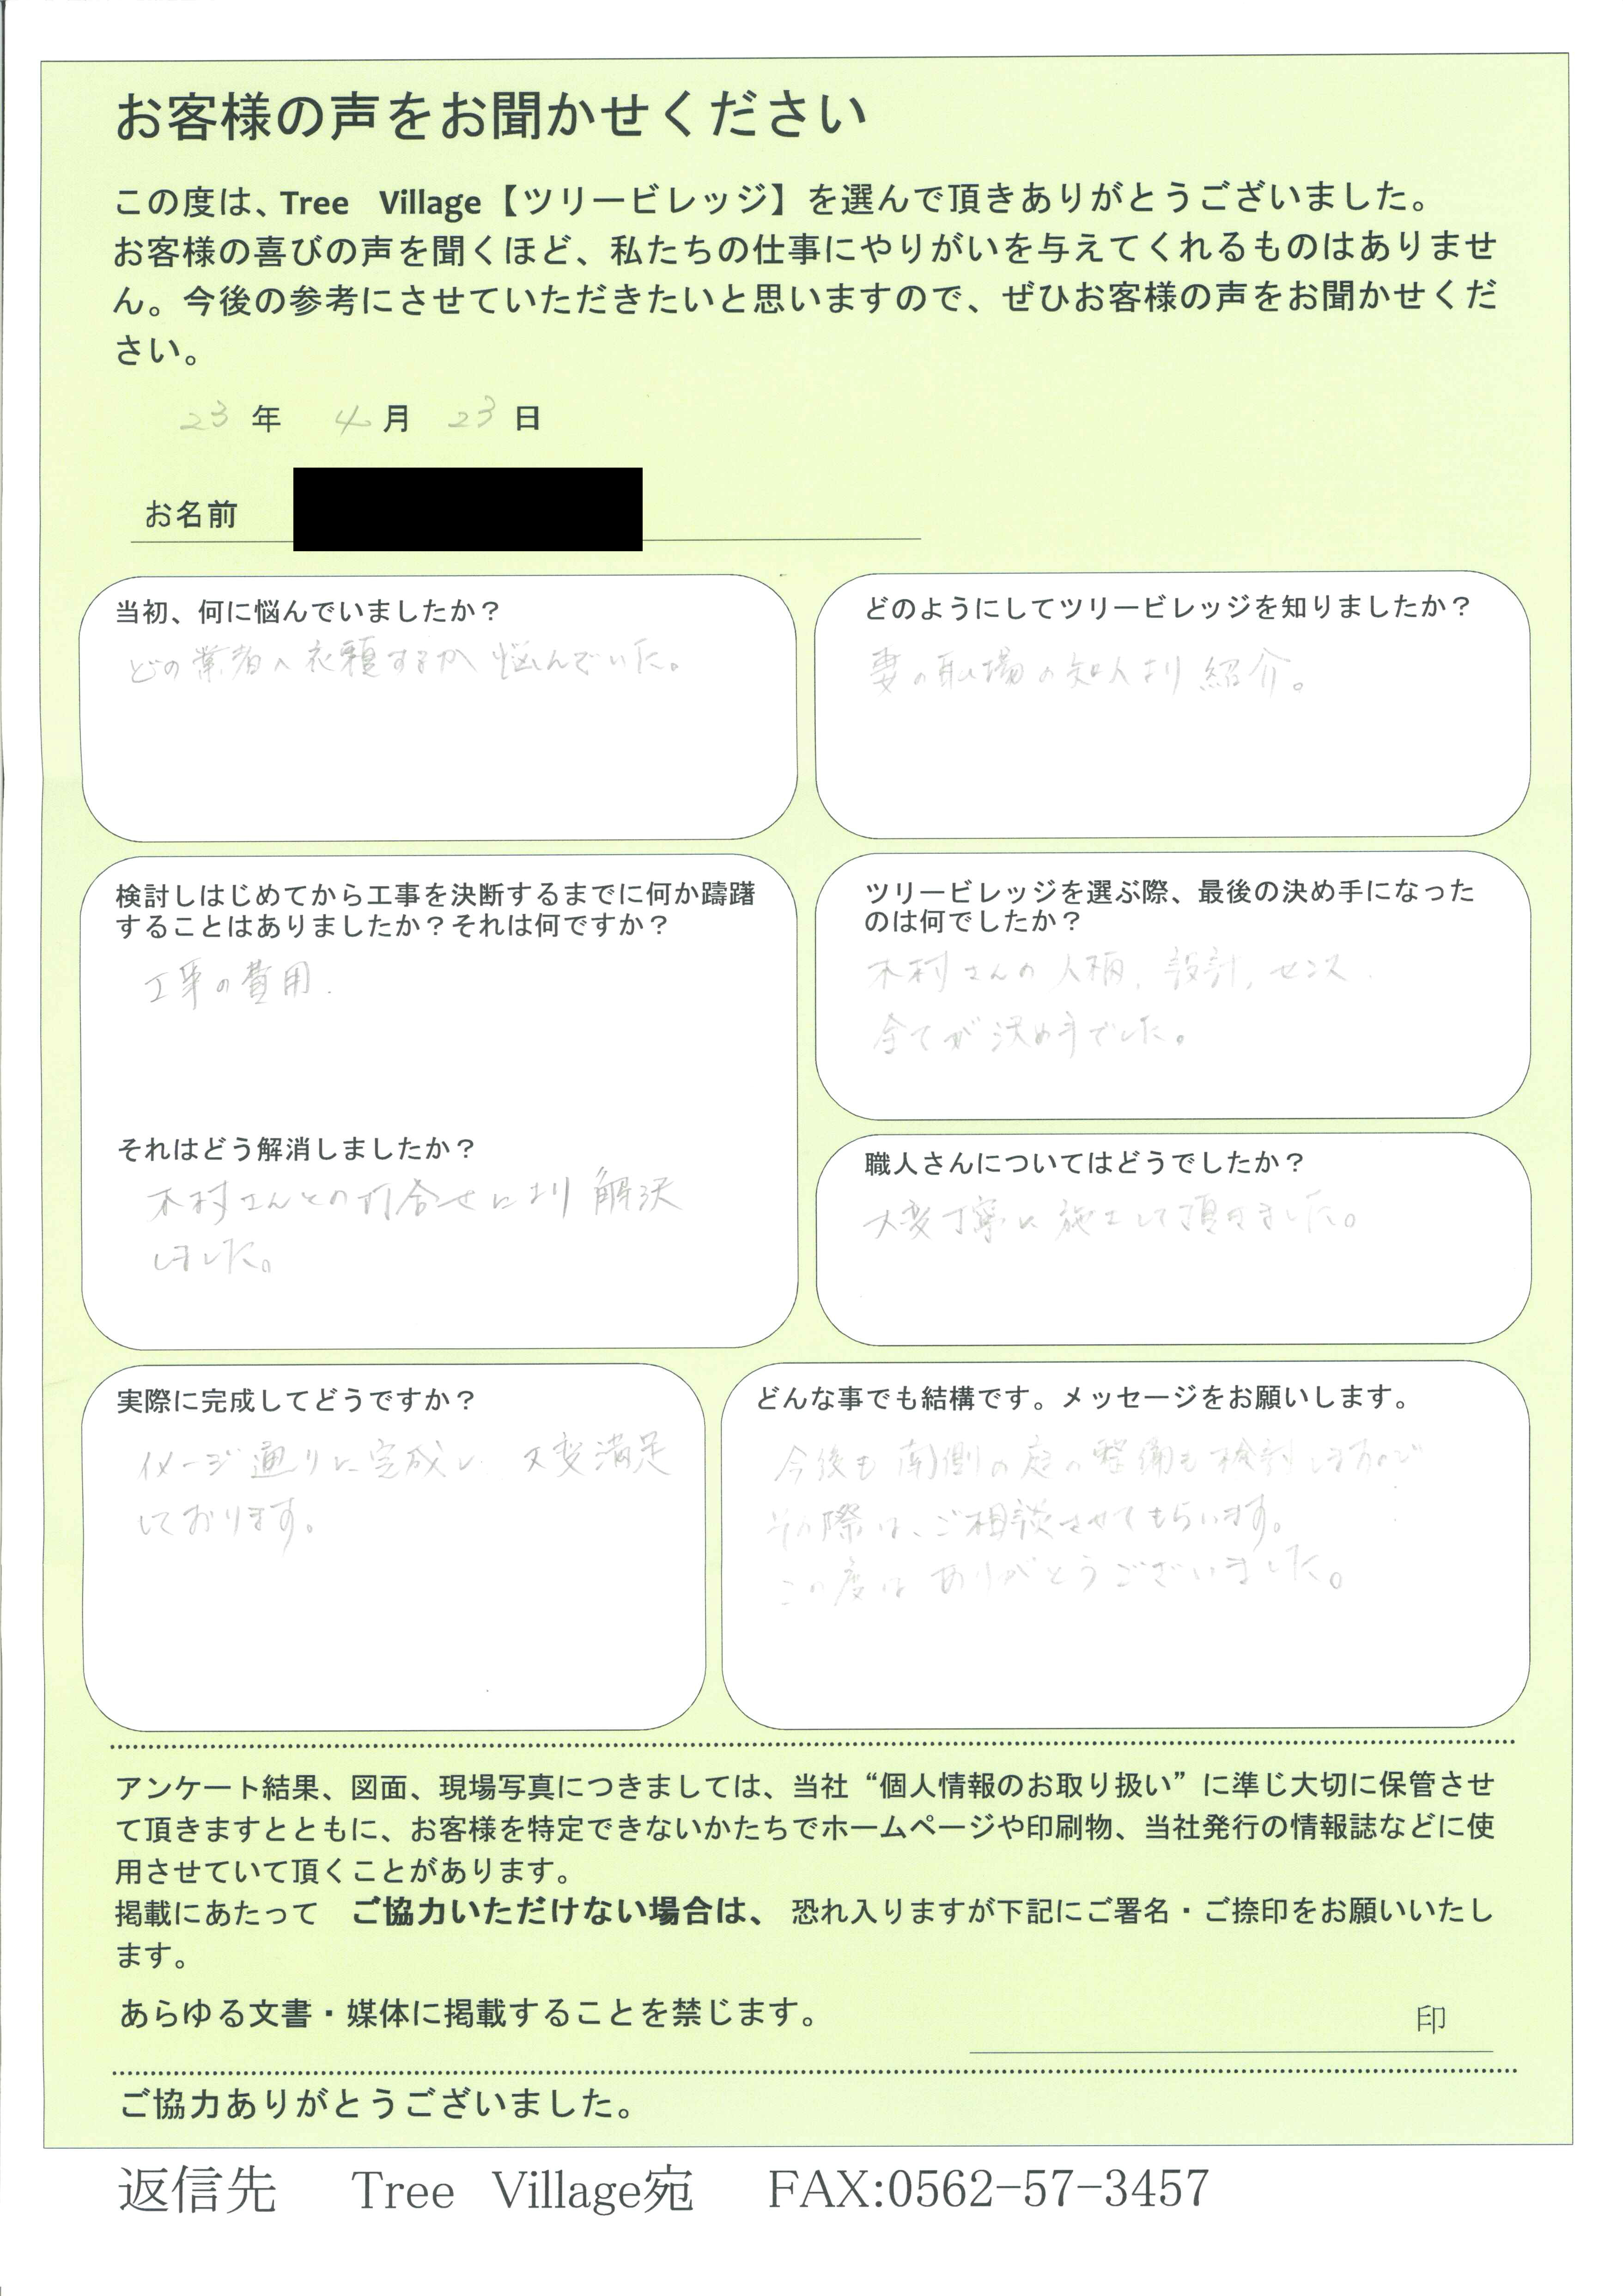 お客様の声をお聞かせください
この度は、Tree Village【ツリービレッジ】を選んで頂きありがとうございました。
お客様の喜びの声を聞くほど、私たちの仕事にやりがいを与えてくれるものはありませ
ん。今後の参考にさせていただきたいと思いますので、ぜひお客様の声をお聞かせくだ
さい。
23 年 4 月 23 日
お名前
当初、何に悩んでいましたか？
どの業者へ衣頼するか 悩んでいた。
どのようにしてツリービレッジを知りましたか？
妻の職場の知人より 紹介。
検討しはじめてから工事を決断するまでに何か躊躇
することはありましたか？それは何ですか？
工事の費用.
それはどう解消しましたか？
木村さんとの打合せにより 解決
しました。
ツリービレッジを選ぶ際、最後の決め手になった
のは何でしたか？
木村さんの 人柄, 設計, センス.
全てが 決め手でした。
職人さんについてはどうでしたか？
大変丁寧に 施工して頂きました。
実際に完成してどうですか？
イメージ通りに完成し 大変満足
しております。
どんな事でも結構です。メッセージをお願いします。
今後も 南側の庭の整備も検討しますので
その際は、ご相談させてもらいます。
この度は ありがとうございました。
アンケート結果、図面、現場写真につきましては、当社“個人情報のお取り扱い”に準じ大切に保管させ
て頂きますとともに、お客様を特定できないかたちでホームページや印刷物、当社発行の情報誌などに使
用させていて頂くことがあります。
掲載にあたって ご協力いただけない場合は、 恐れ入りますが下記にご署名・ご捺印をお願いいたし
ます。
あらゆる文書・媒体に掲載することを禁じます。
印
ご協力ありがとうございました。
返信先 Tree Village宛 FAX:0562-57-3457